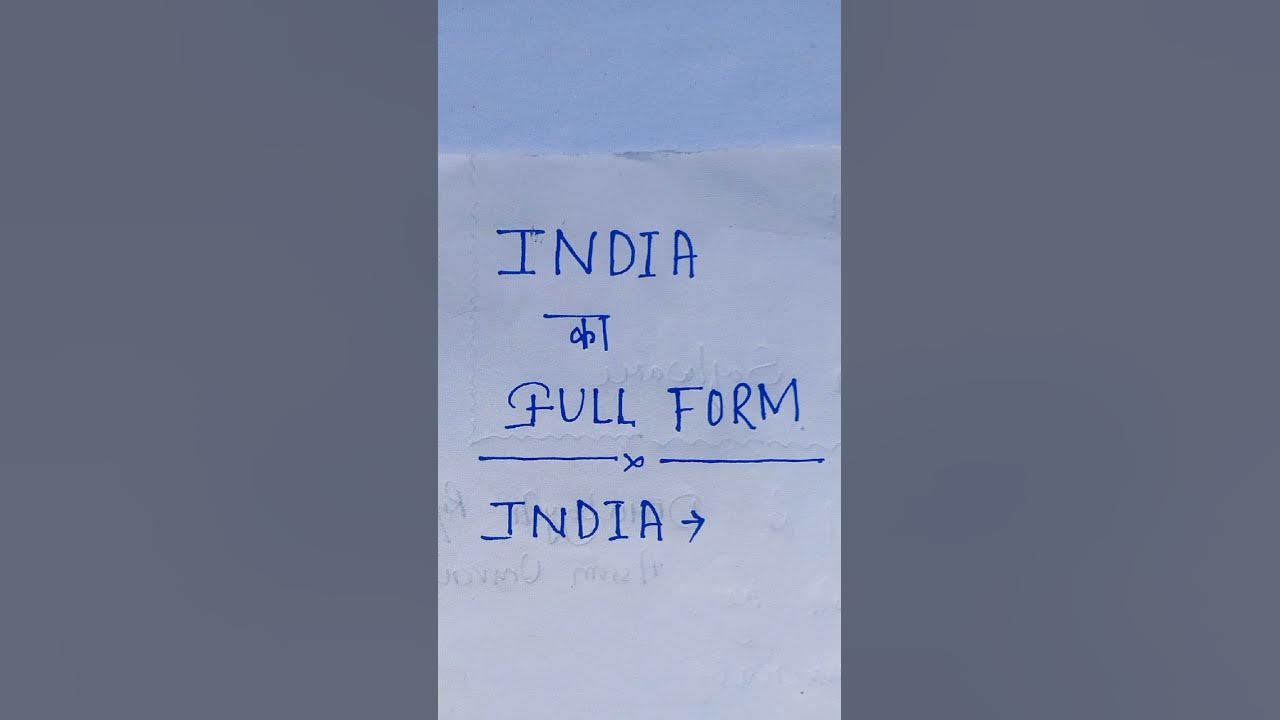 INDIA
का
FULL FORM
x
INDIA →